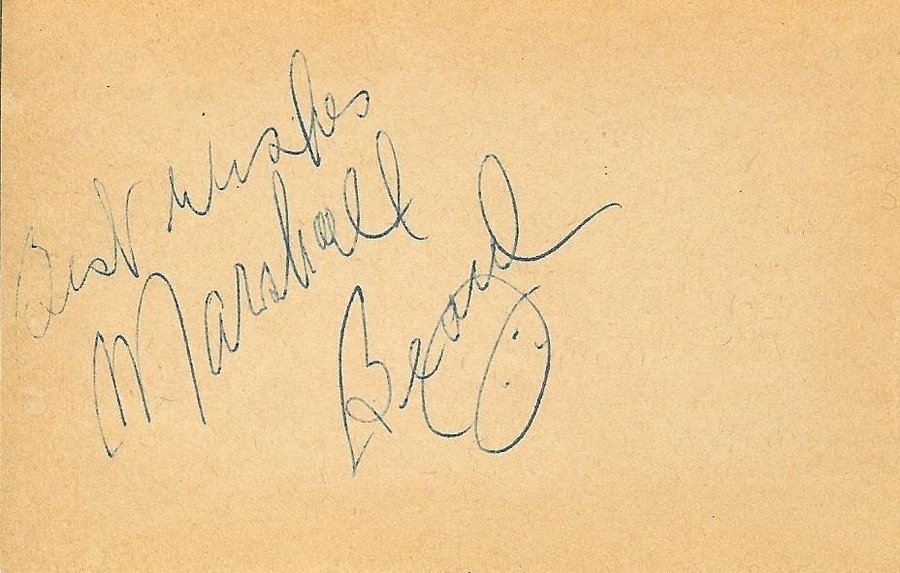 Best wishes
Marshall
Beard